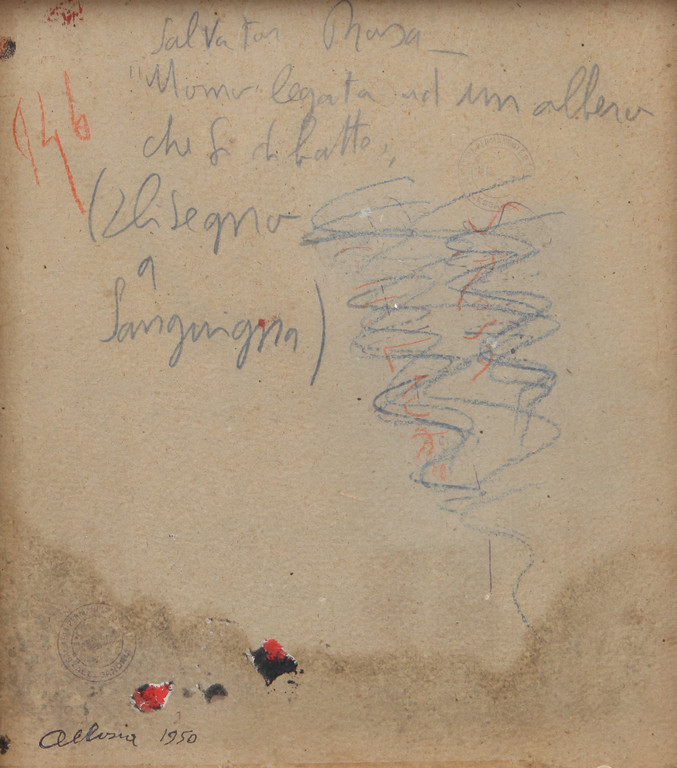 Salvator Rosa
"Uomo legato ad un albero
che si dibatte"
946
(Disegno
a
Sanguigna)
1950